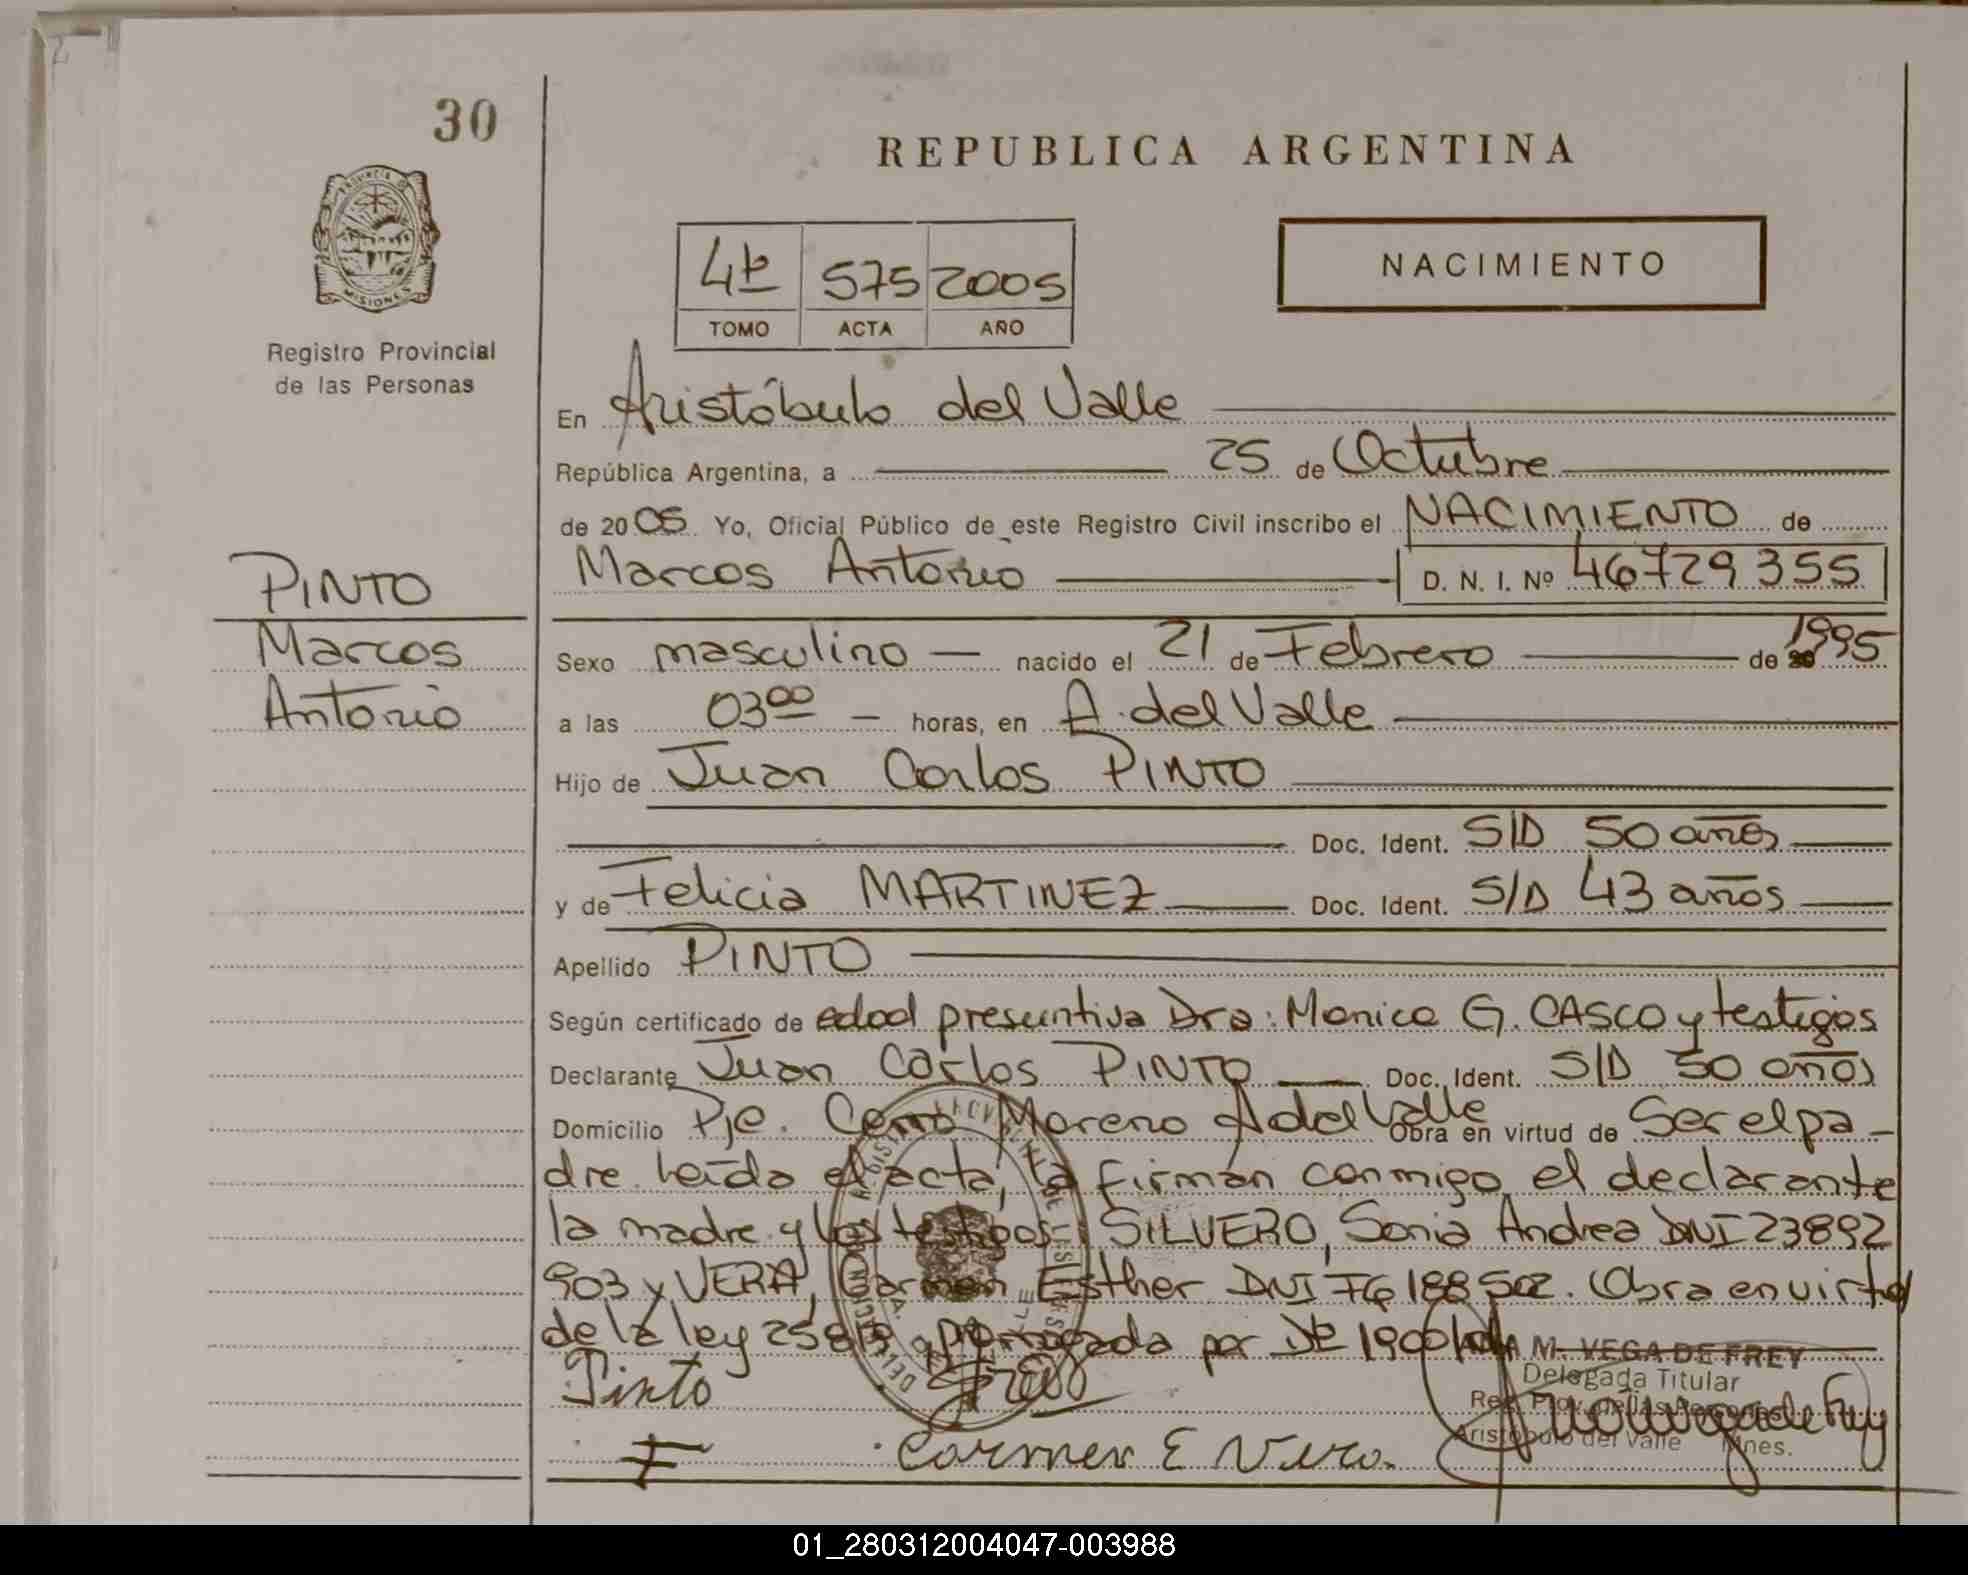 30
REPUBLICA ARGENTINA
PROVINCIA DE
MISIONES
Registro Provincial
de las Personas
4to 575 2005
TOMO ACTA AÑO
NACIMIENTO
En Aristóbulo del Valle
República Argentina, a 25 de Octubre
de 2005. Yo, Oficial Público de este Registro Civil inscribo el NACIMIENTO de
Marcos Antonio D. N. I. Nº 46729355
PINTO
Marcos
Antonio
Sexo masculino nacido el 21 de Febrero de 1995
a las 0300 horas, en A. del Valle
Hijo de Juan Carlos PINTO
Doc. Ident. S/D 50 años
y de Felicia MARTINEZ Doc. Ident. S/D 43 años
Apellido PINTO
Según certificado de edad presuntiva Dra: Monica G. CASCO y testigos
Declarante Juan Carlos PINTO Doc. Ident. S/D 50 años
Domicilio Pje. Cerro Moreno A del Valle Obra en virtud de Ser el pa-
dre. Leída el acta, la firman conmigo el declarante
la madre y los testigos: SILVERO, Sonia Andrea DNI 23892
903 y VERA, Carmen Esther DNI 188502. Obra en virtud
de la ley prorrogada por
M. VEGA DE FREY
Delegada Titular
Reg. Prov. de las Personas
Aristóbulo del Valle Mnes.
Pinto
Carmen E Vera.
01_280312004047-003988